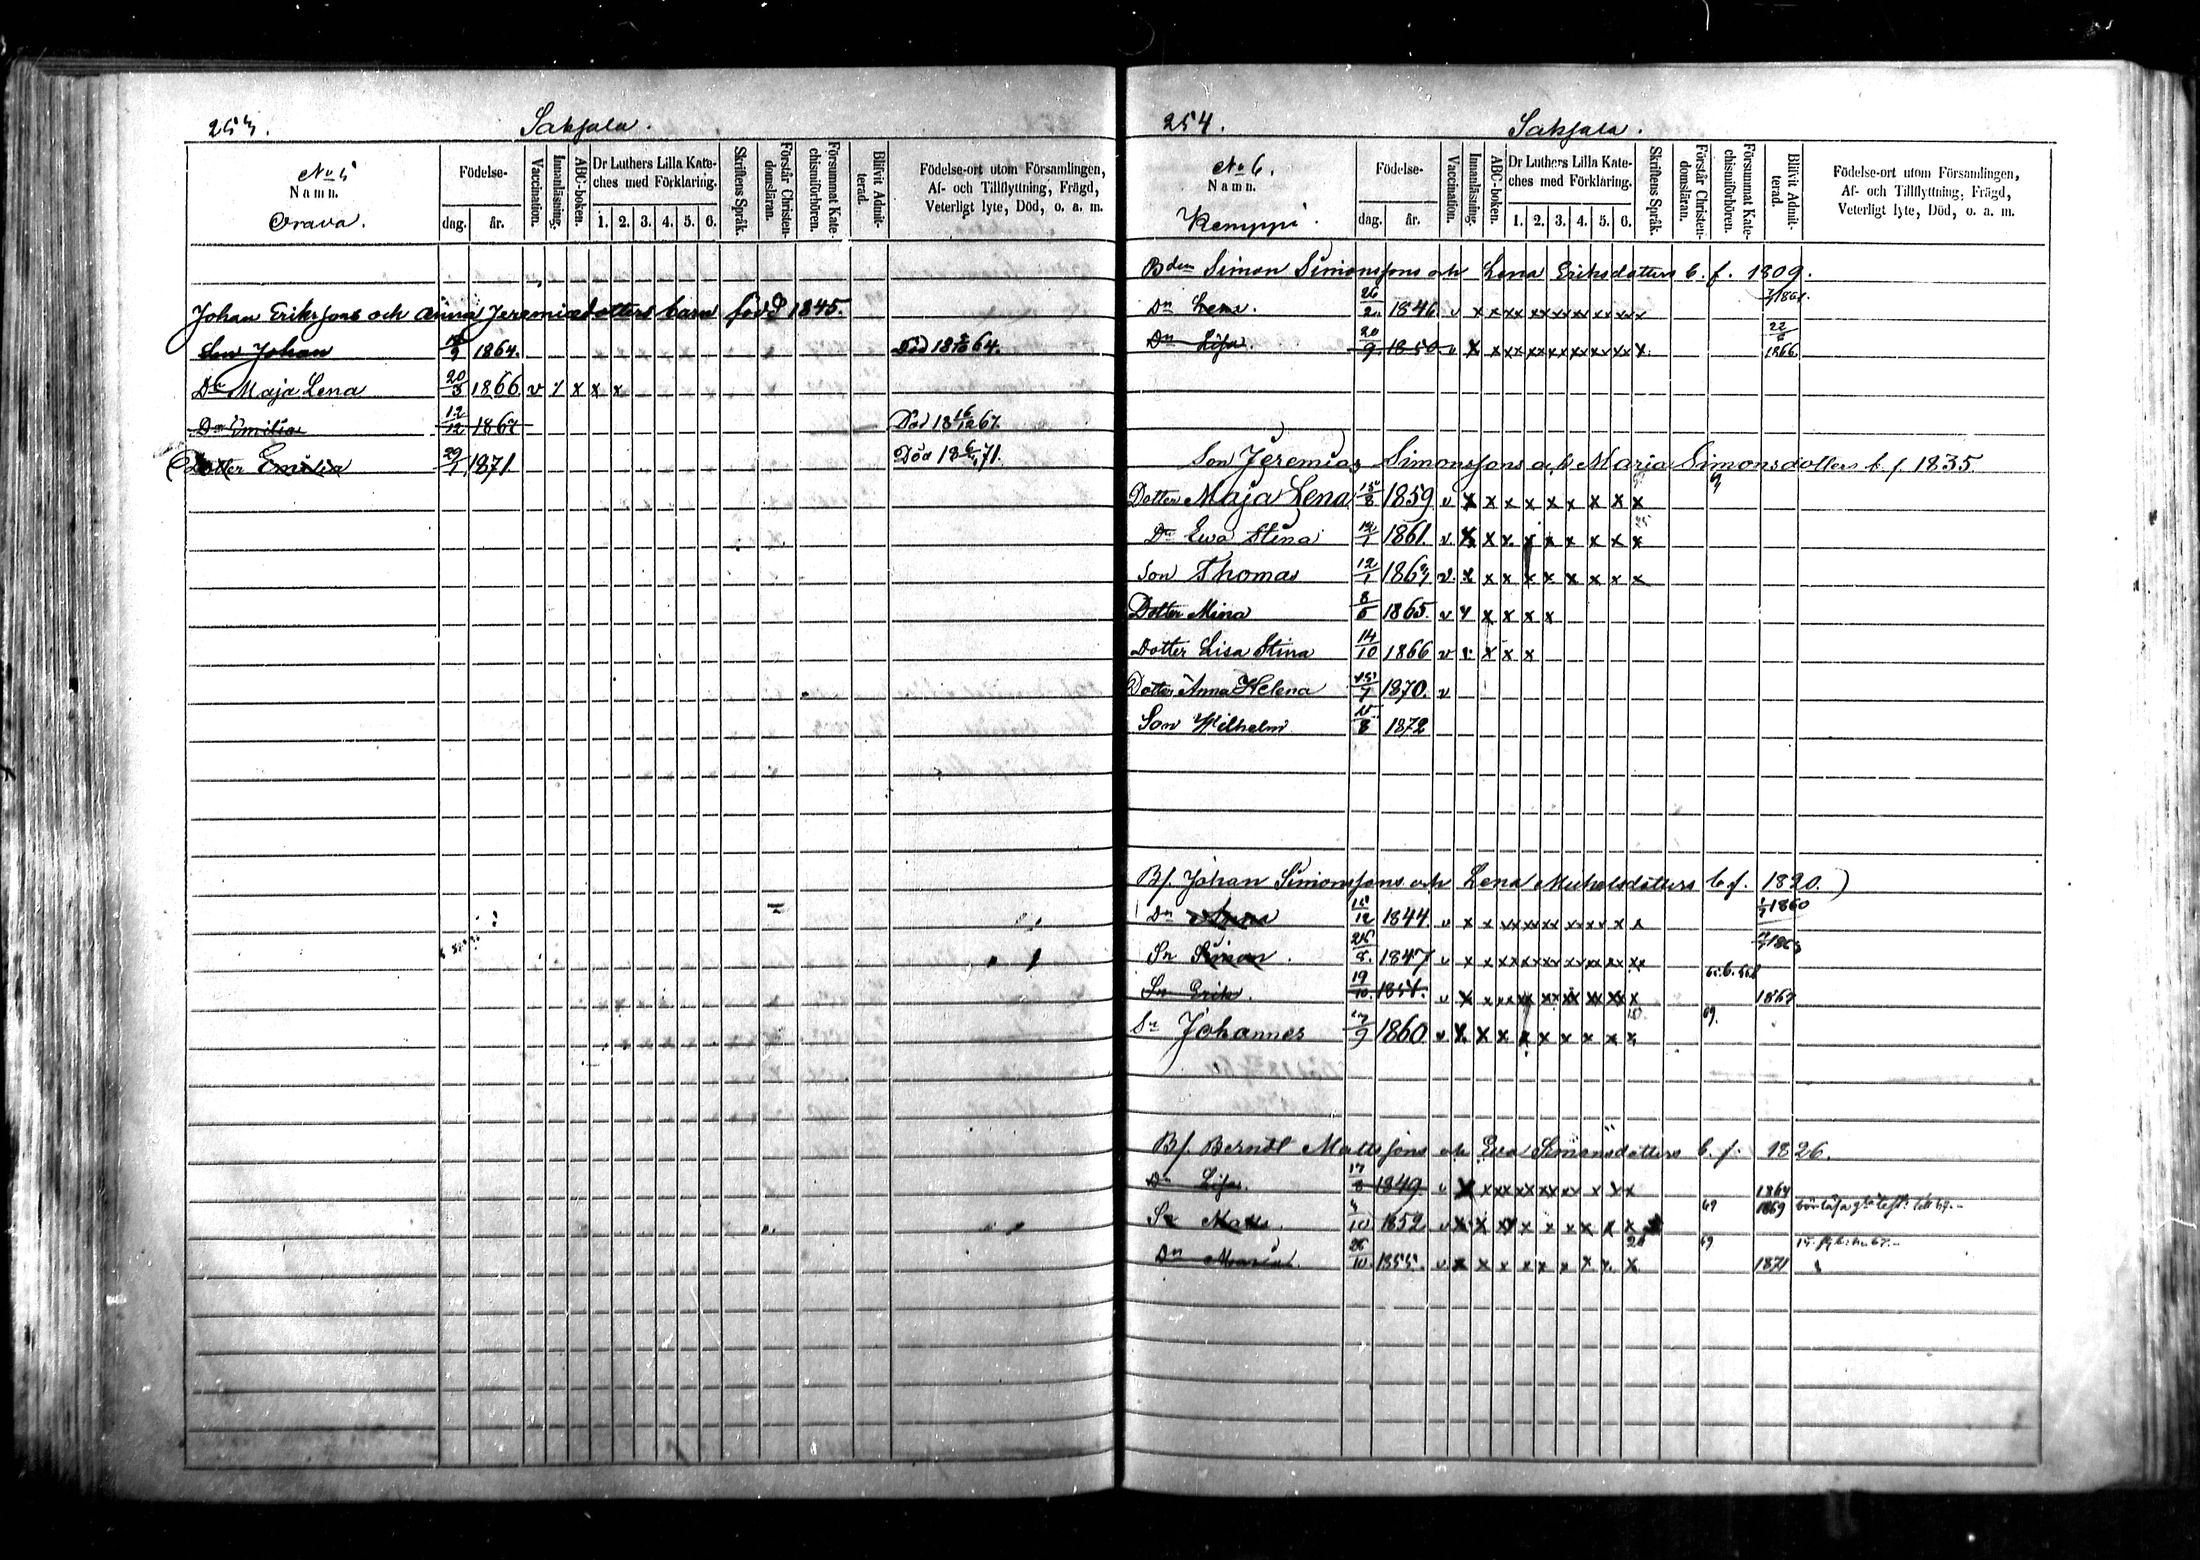 253. Sakjala.
No 5
Namn.
Orava.
Födelse-
dag. år.
Vaccination.
Innanläsning.
ABC-boken.
Dr Luthers Lilla Kate-
ches med Förklaring.
1. 2. 3. 4. 5. 6.
Skriftens Språk.
Förstår Christen-
domsläran.
Försummat Kate-
chismiförhören.
Blifvit Admit-
terad.
Födelse-ort utom Församlingen,
Af- och Tillflyttning, Frägd,
Veterligt lyte, Död, o. a. m.
Johan Erikssons och Anna Jeremiædotters barn född 1845.
Son Johan 1864. Död 64.
Dr Maja Lena 20/3 1866 v x x x x
Dr Emilia 12/12 1867 Död 18 16/12 67.
Dotter Emilia 29/1 1871 Död 18 71.
254. Sakjala.
No 6.
Namn.
Kemppi.
Födelse-
dag. år.
Vaccination.
Innanläsning.
ABC-boken.
Dr Luthers Lilla Kate-
ches med Förklaring.
1. 2. 3. 4. 5. 6.
Skriftens Språk.
Förstår Christen-
domsläran.
Försummat Kate-
chismiförhören.
Blifvit Admit-
terad.
Födelse-ort utom Församlingen,
Af- och Tillflyttning, Frägd,
Veterligt lyte, Död, o. a. m.
Bden Simon Simonssons och Lena Eriksdotters b. f. 1809.
Dr Lena. 26/2. 1846 v x x xx xx xx xx xx xx x
Dr Lisa. 20/9. 1850 v x x xx xx xx xx xx xx x 1866
Son Jeremias Simonssons och Maria Simonsdotters b. f 1835.
Dotter Maja Lena 15/8 1859 v x x x x x x x x x
Dr Ewa Stina 1861. v. x x x x x x x x x
Son Thomas 12/1 v. x x x x x x x x x
Dotter Mina 1865. v x x x x x
Dotter Lisa Stina 14/10 1866 v x x x x
Dotter Anna Helena 1870. v
Son Wilhelm 1872
Bf. Johan Simonssons och Lena Michelsdotters b. f. 1820.)
Dr Anna 15/12 1844. v x x xx xx xx xx x x x 1860
Sn Simon. 1847 v x x xx xx xx xx xx xx
Sn Erik. 19/10. v x x xx xx xx xx xx x 1867
Sn Johannes 1860 v x x x x x x x x 69.
Bf. Berndt Mattssons och Ewa Simonsdotters b. f. 1826.
Dr Lisa. 17/8 1849 v x x xx xx xx xx x x x 1864
Sn Matts. 1852 v x x xx x x x x x x 69 1869
Dr Maria. 26/10. 1855. v x x x x x x x x 69 1871